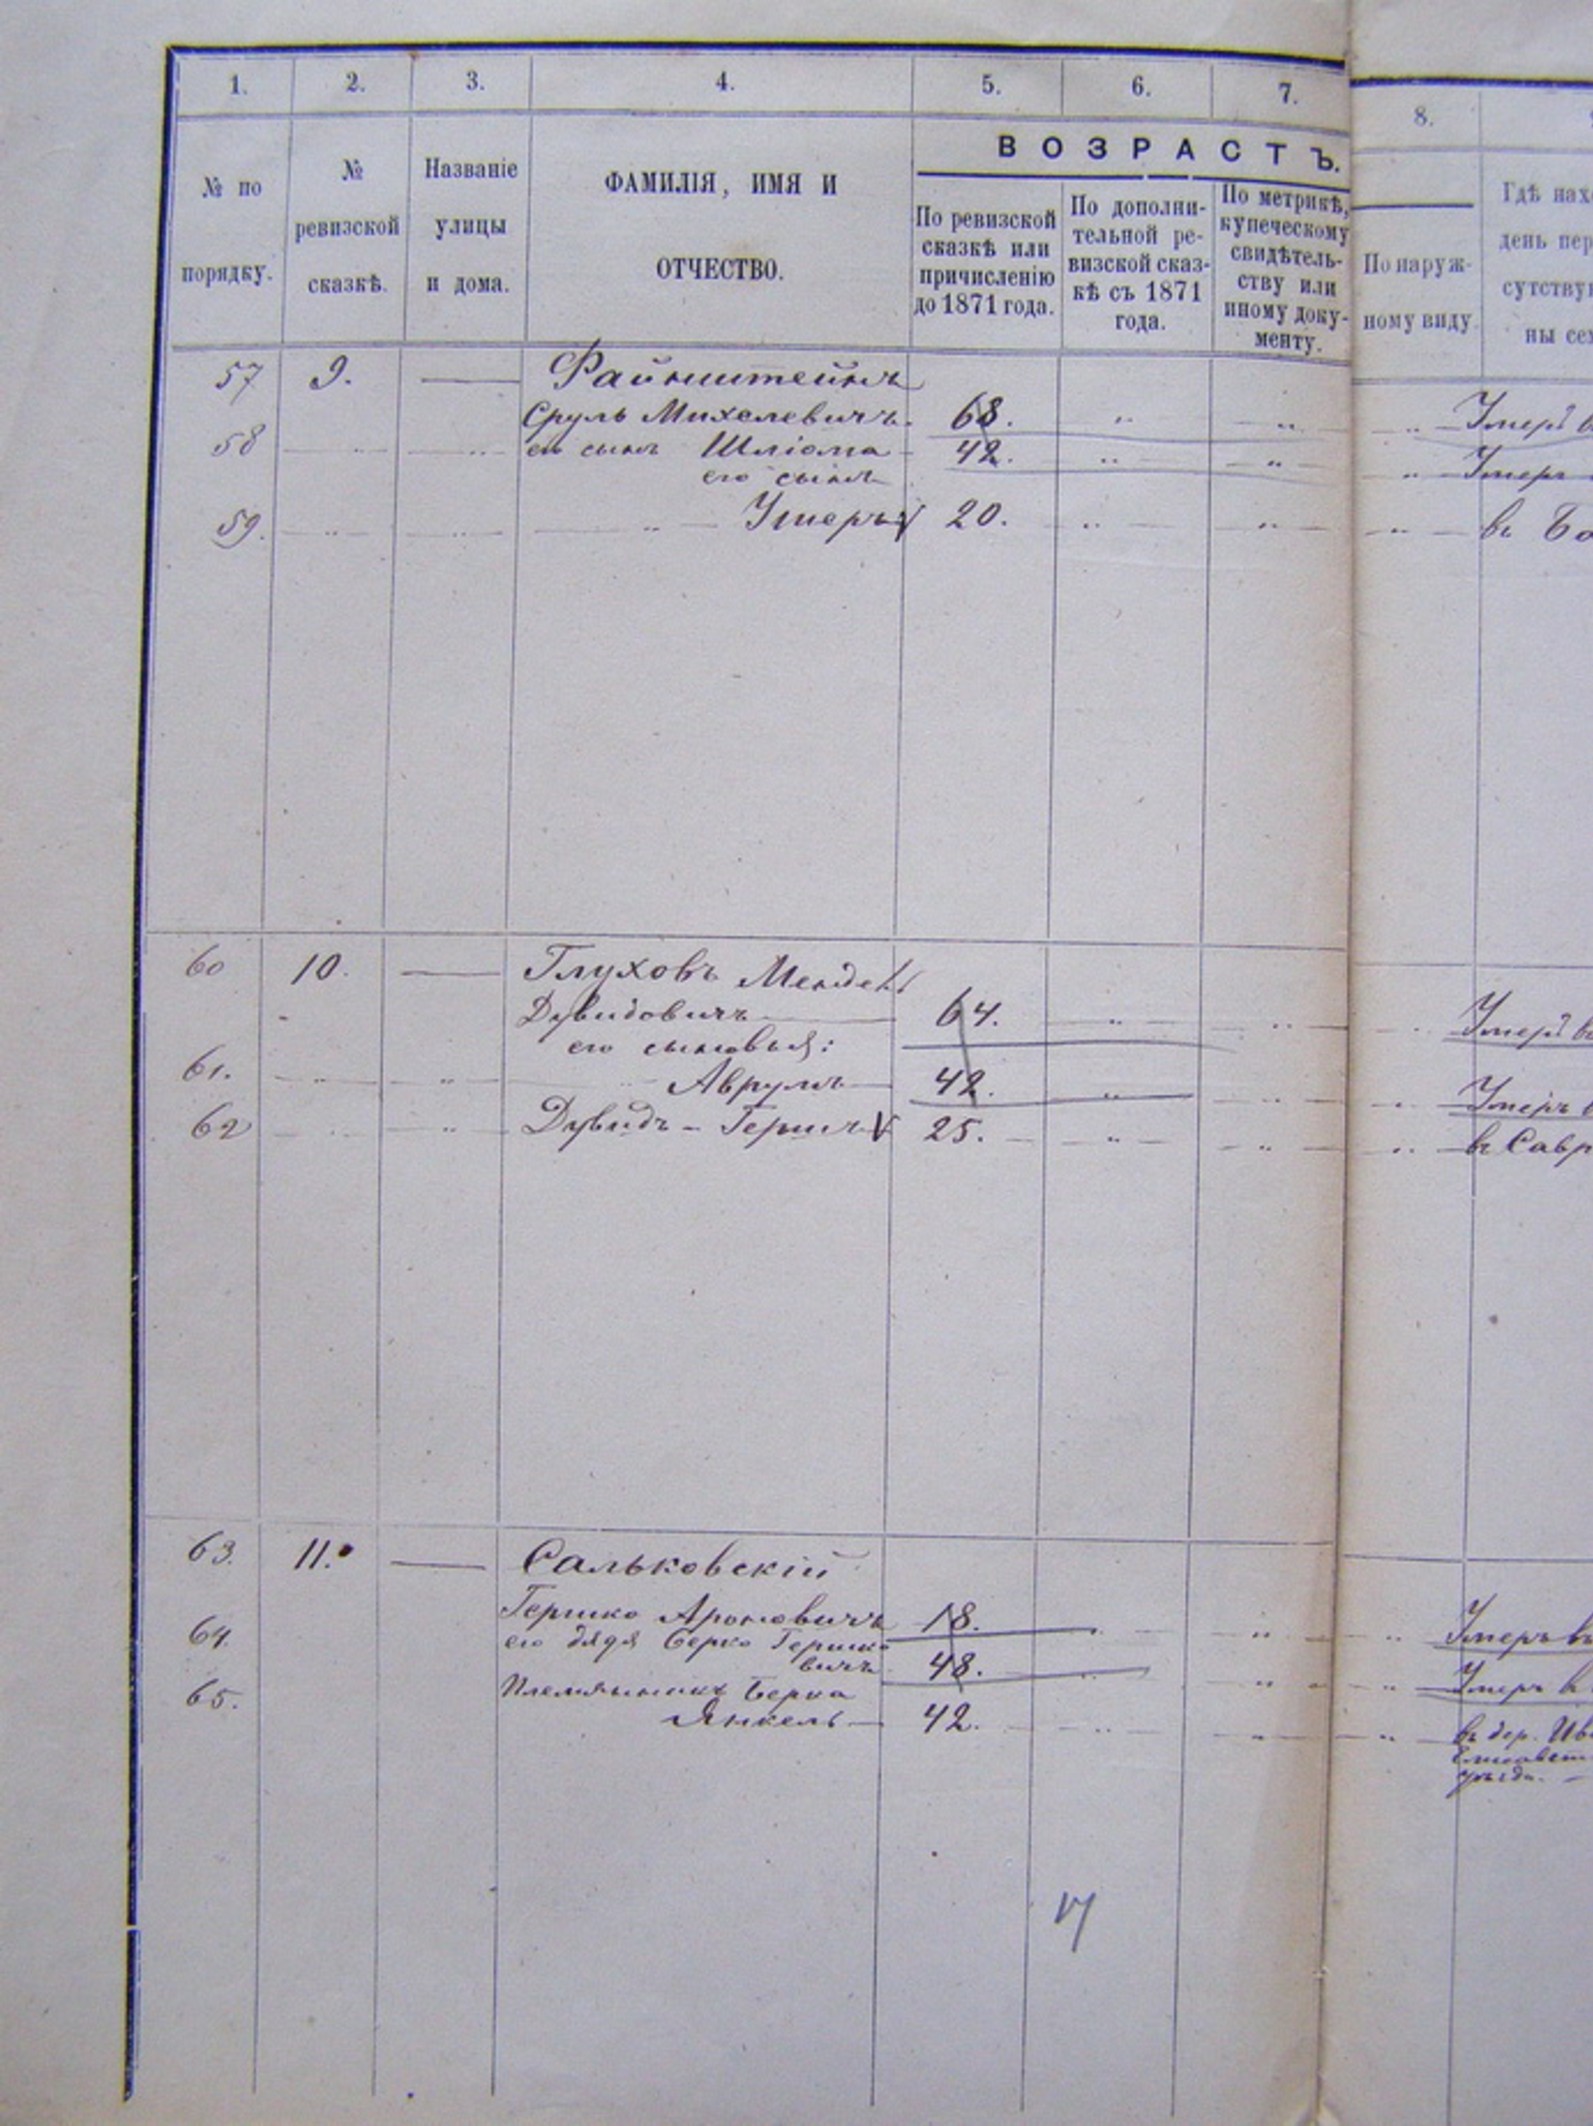 1. 2. 3. 4. 5. 6. 7. 8.
№ по порядку.
№ ревизской сказкѣ.
Названіе улицы и дома.
ФАМИЛІЯ, ИМЯ И ОТЧЕСТВО.
ВОЗРАСТЪ.
По ревизской сказкѣ или причисленію до 1871 года.
По дополни-тельной ре-визской сказ-кѣ съ 1871 года.
По метрикѣ, купеческому свидѣтель-ству или иному доку-менту.
По наруж-ному виду.
Гдѣ нах
день пер
сутству
ны се
57 9. — Файнштейнъ
Сруль Михелевичъ 68. " " " Умеръ в
58 " " его сынъ Шліома 42. " " " Умеръ
его сынъ
59. " " " Умеръ V 20. " " " въ Бо
60 10. — Глуховъ Мендель
Дувидовичъ 64. " " Умеръ в
его сыновья:
61. " " Аврумъ 42. " " " Умеръ в
62 " " Дувидъ-Гершъ V 25. " " " въ Савр
63. 11. — Сальковскій
Гершко Ароновичъ 18. " " " Умеръ въ
64. его дядя Берко Гершко
вичъ 48. " " " Умеръ в
65. Племянникъ Берка
Янкель — 42. " " " въ дер. Ив
Елисавет
уѣзда. —
17